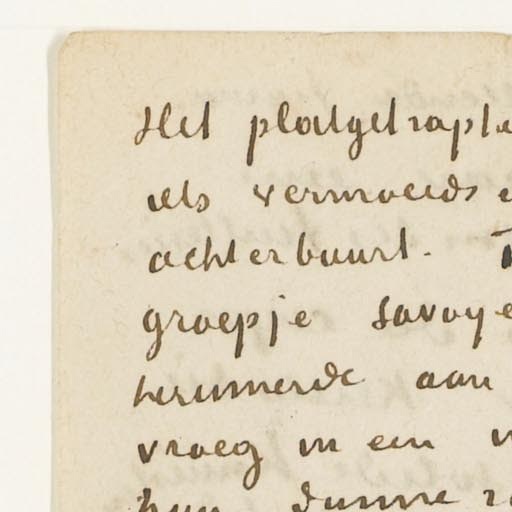 Het platgetrapte
iets vermoeids
achterbuurt.
groepje savoye
herinnerde aan
vroeg in een
hun dunne